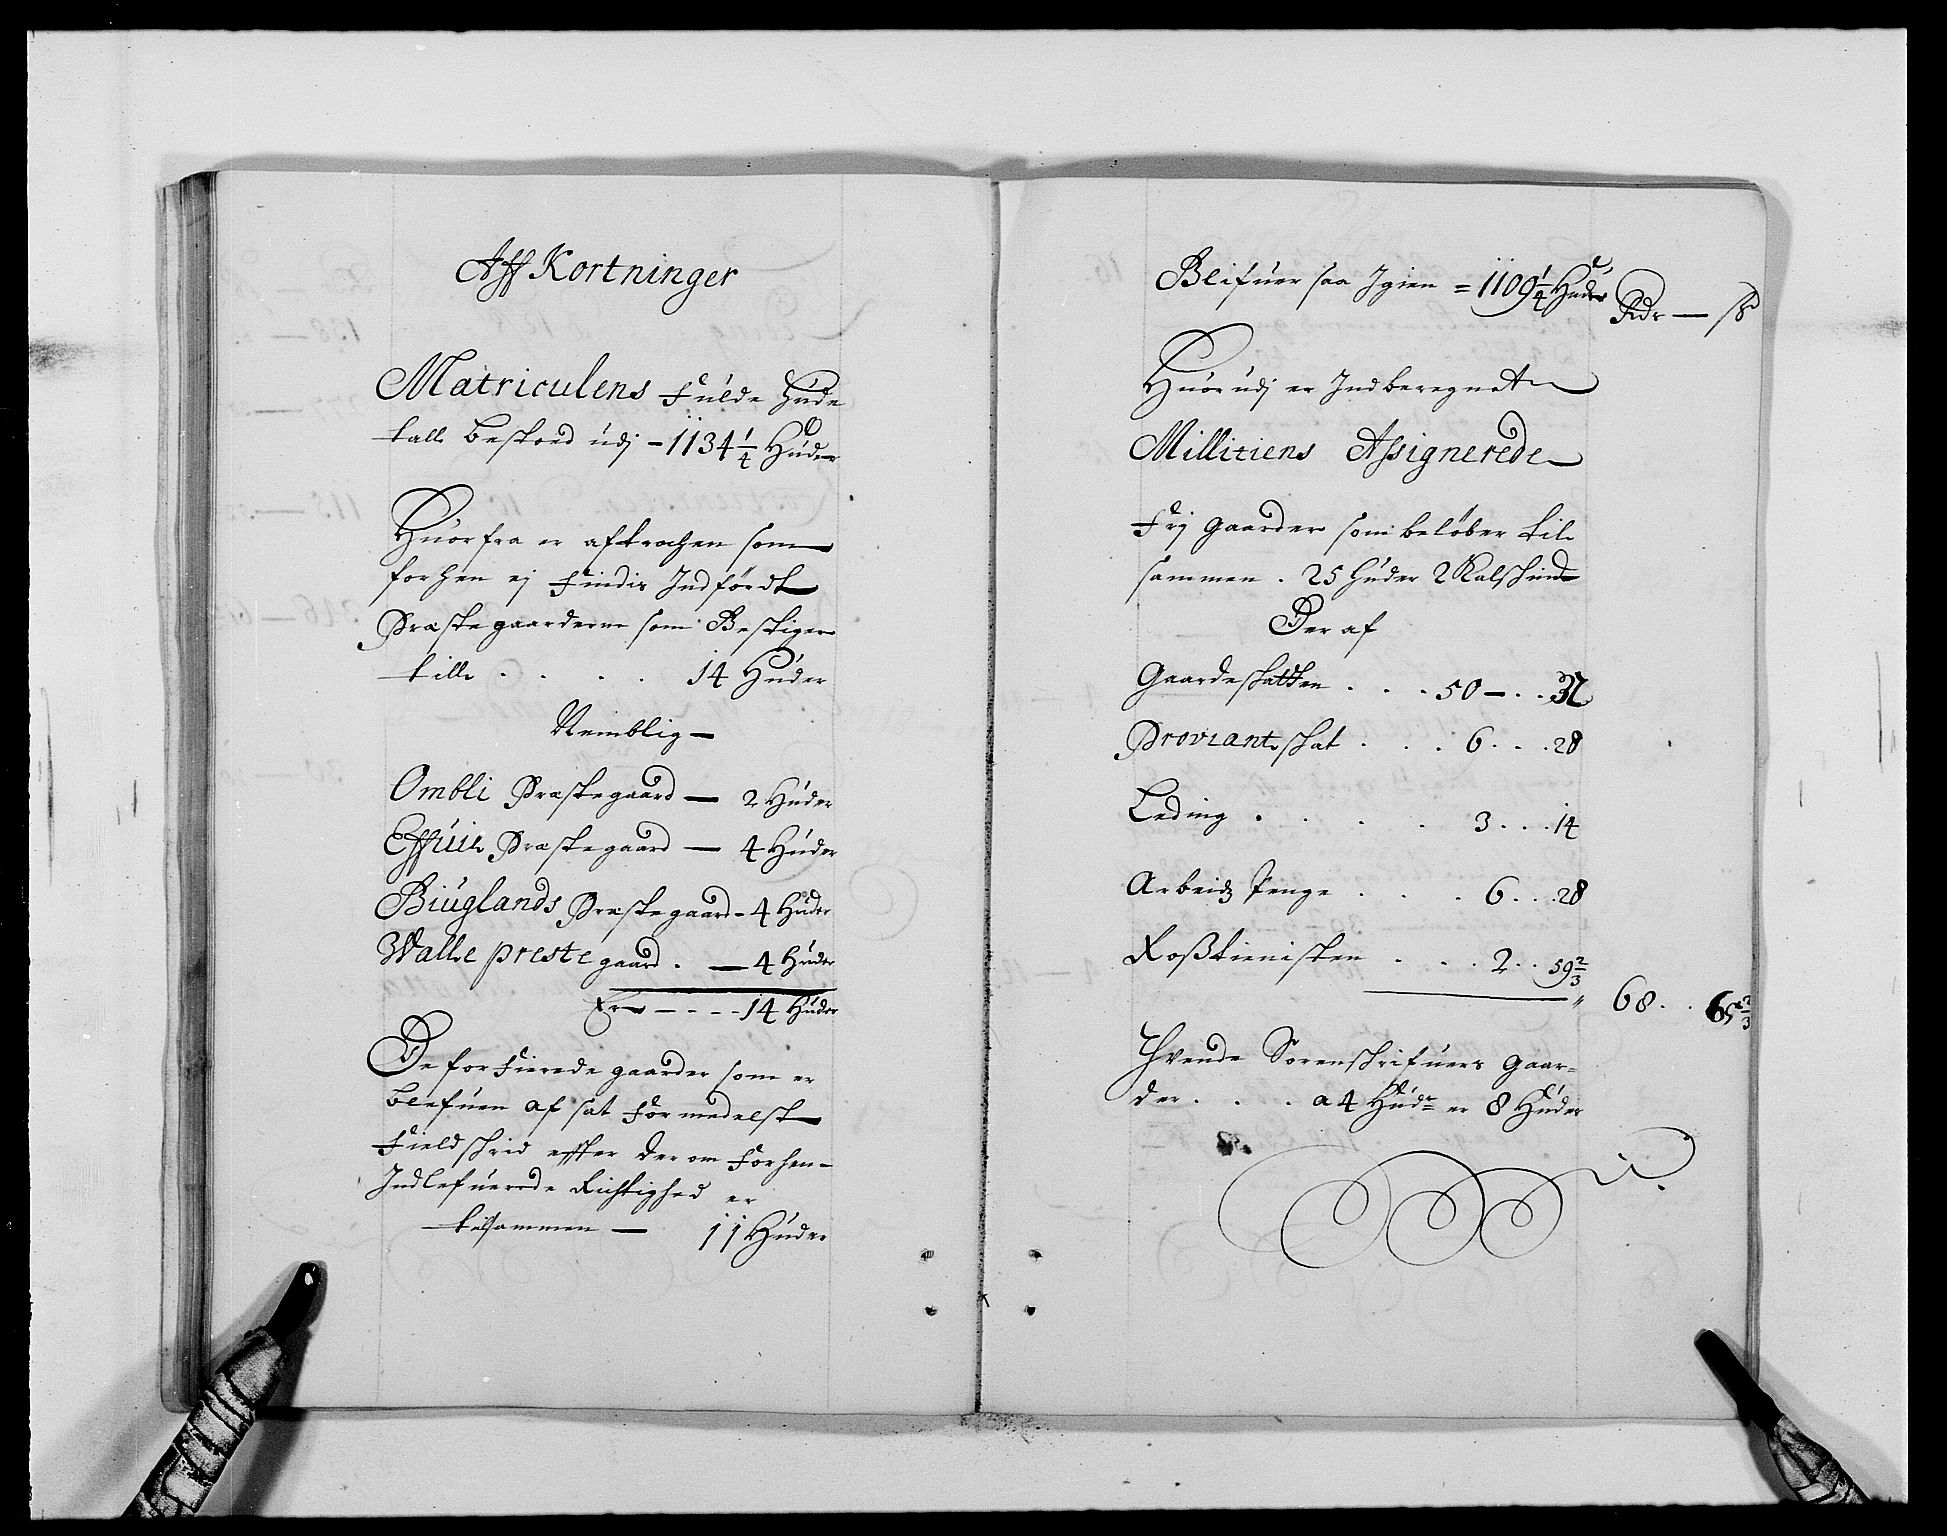 Aff Kortninger
Matriculens Fulde Hude
tall bestoed udj - 1134 1/4 Huder
Huorfra er aftrachen som
forhen ej Findis Indfördt
Præstegaarderne som Bestiger
till . . . . 14 Huder
Nemblig
Ombli Præstegaard — 2 Huder
Præstegaard — 4 Huder
Biuglands Præstegaard - 4 Huder
Walle prestegaard . — 4 Huder
Er — - - - 14 Huder
De forfierede gaarder som er
blefuen af sat Formedelst
Fieldschrid effter der om Forhen-
Indlefuerede Richtighed er
tilsammen — 11 Huder
Blifuer saa Igien = 1109 1/4 Huder
Rdr — ß
Huorudj er Indberegnet
Millitiens Assignerede
Frj gaarder som beløber til
sammen . 25 huder 2 Kalfschind
Der af
Gaardeskatten . . . 50 - . . 32
Proviantskat . . . 6 . . . 28
Leding . . . . 3 . . . 14
Arbeidz Penge . . . 6 . . . 28
Roßtienisten . . . 2 . . 59 2/3
68 . . 65 2/3
Thvende Sorenschrifuers gaar=
der . . . a 4 Hudr er 8 Huder